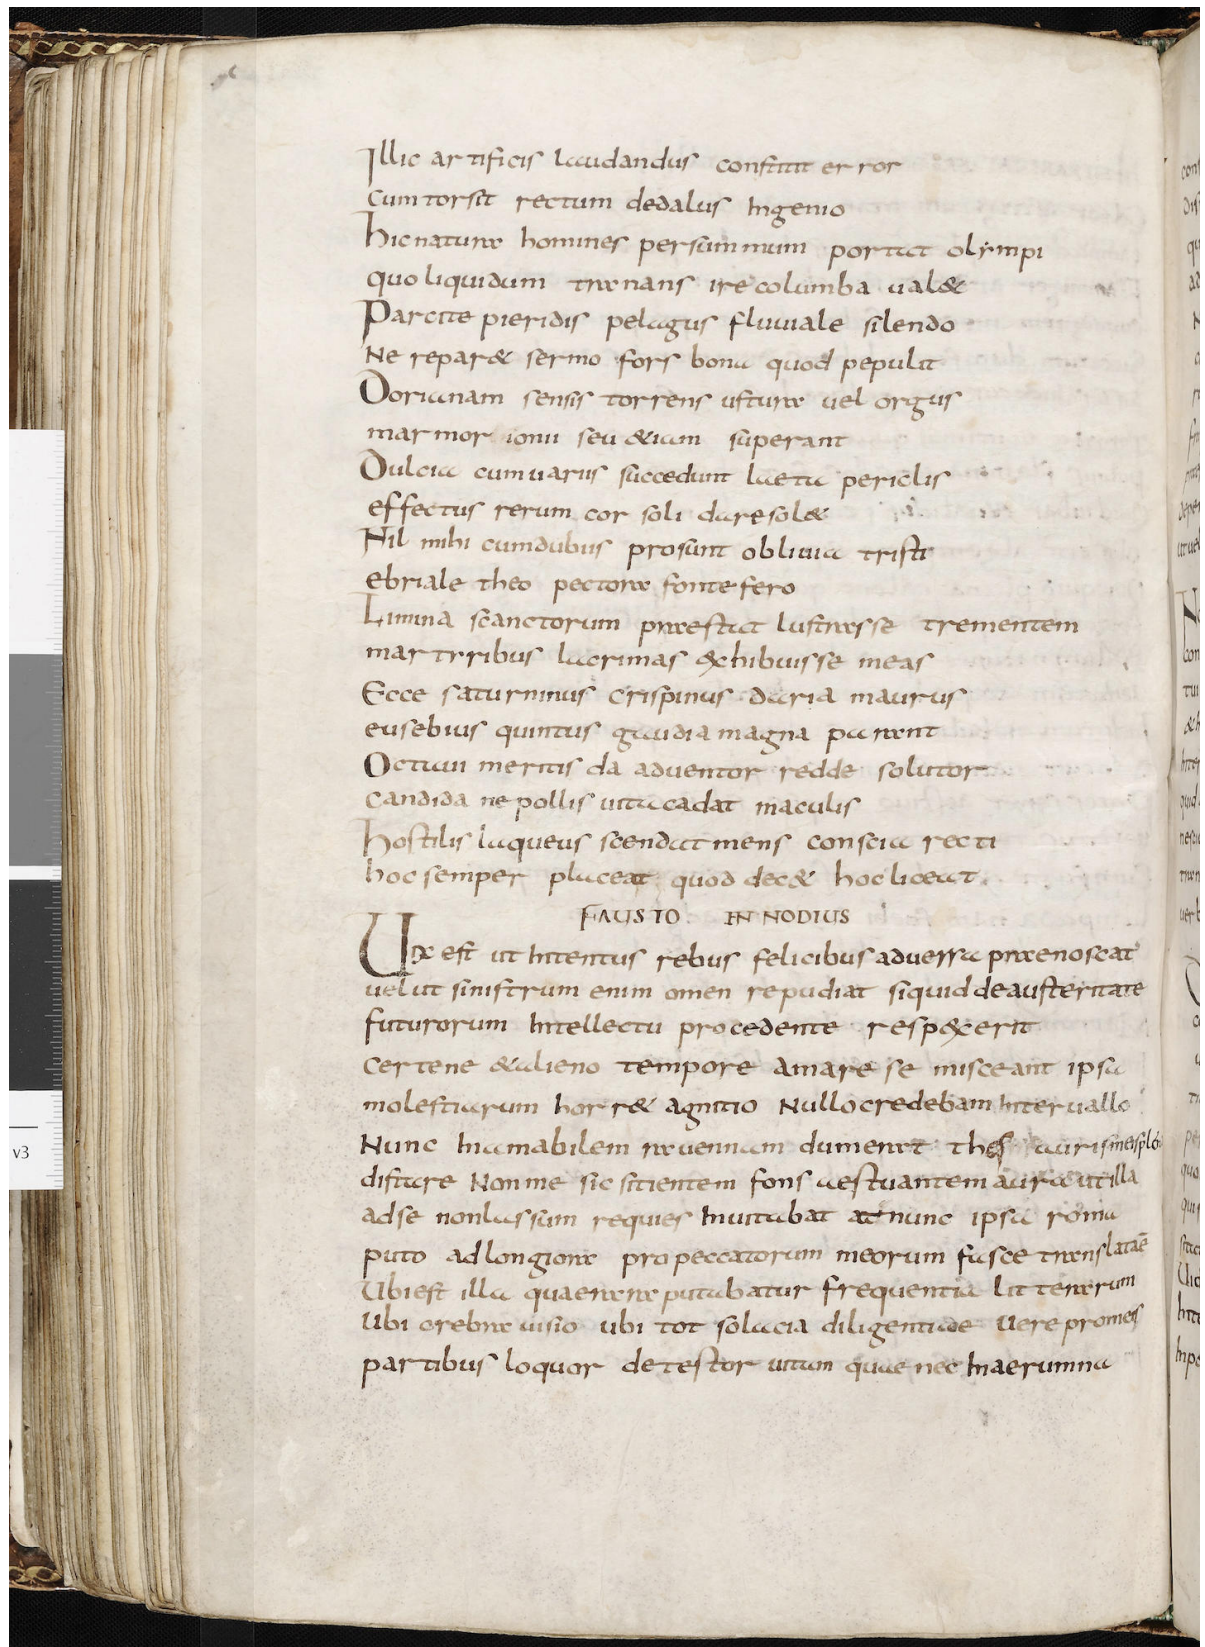 Illic artificis laudandus constitit error
cum torsit rectum dedalus Ingenio
hic natura homines per summum portat olympi
quo liquidum tranans ire columba ual&
Parcite pieridis pelagus fluuiale silendo
Ne repar& sermo fors bona quod pepulit
Dorianam sensis torrens ustura uel orgus
marmor ionii seu &iam superant
Dulcia cum uariis succedunt laeta periclis
effectus rerum cor soli dare sol&
Nil mihi cum dubiis prosunt obliuia tristi
ebriale theo pectora fonte fero
Limina scanctorum praestat lustrasse trementem
martyribus lacrimas &hibuisse meas
Ecce saturninus crispinus daria maurus
eusebius quintus gaudia magna parant
Octaui meritis da aduentor redde solutor
candida ne pollis uita cadat maculis
hostilis laqueus scendat mens conscia recti
hoc semper placeat quod dec& hoc liceat
FAUSTO INNODIUS
Ita est ut Intentus rebus felicibus aduersa praenoscat
uelut sinistrum enim omen repudiat siquid de austeritate
futurorum Intellectu procedente resp&erit
certe ne &alieno tempore amare se misceant ipsa
molestiarum horr& agnitio Nullo credebam Interuallo
Nunc Inamabilem rauennam dum erat thes auris meis
distare Non me sic sitientem fons aestuantem aura ut illa
ad se non lassum requies Inuitabat at nunc ipsa roma
puto ad longiora pro peccatorum meorum fasce translata e
Ubi est illa quae rara putabatur frequentia litterarum
Ubi crebra uisio ubi tot solacia diligentiae Uere promes
partibus loquor detestor uitam quae nec In aerumna